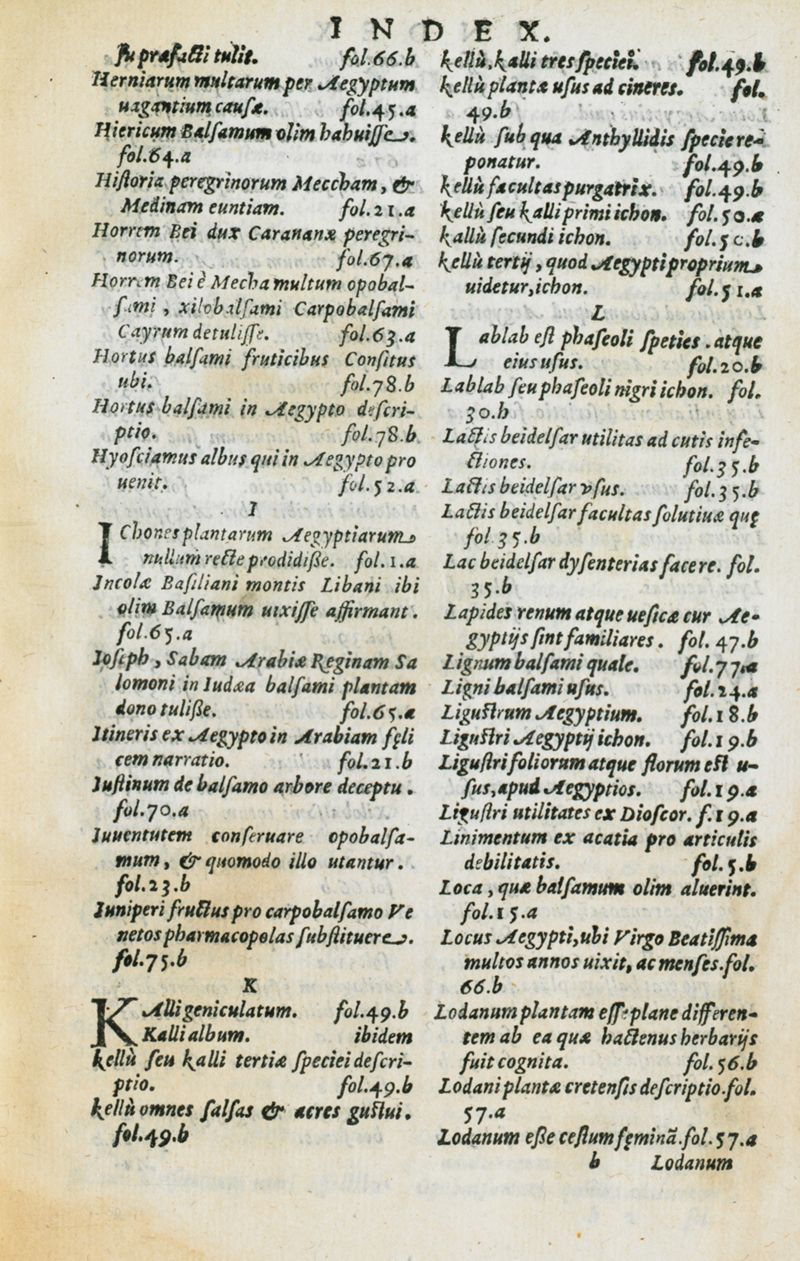 INDEX.
ſu præfacti tulit. fol.66.b
Herniarum multarum per Aegyptum
uagantium cauſæ. fol.45.a
Hiericum Balſamum olim habuiſſe.
fol.64.a
Hiſtoria peregrinorum Meccham, &
Medinam euntiam. fol.21.a
Horrem Bei dux Carananæ peregri-
norum. fol.67.a
Horrem Bei è Mecha multum opobal-
ſami, xilobalſami Carpobalſami
Cayrum detuliſſe. fol.63.a
Hortus balſami fruticibus Conſitus
ubi. fol.78.b
Hortus balſami in Aegypto deſcri-
ptio. fol.78.b
Hyoſciamus albus qui in Aegypto pro
uenit. fol.52.a
I
IChones plantarum Aegyptiarum
nullum recte prodidiſſe. fol.1.a
Incolæ Baſiliani montis Libani ibi
olim Balſamum uixiſſe affirmant.
fol.65.a
Ioſeph, Sabam Arabiæ Reginam Sa
lomoni in Iudæa balſami plantam
dono tuliſſe. fol.65.a
Itineris ex Aegypto in Arabiam fęli
cem narratio. fol.21.b
Iuſtinum de balſamo arbore deceptu.
fol.70.a
Iuuentutem conſeruare opobalſa-
mum, & quomodo illo utantur.
fol.23.b
Iuniperi fructus pro carpobalſamo Ve
netos pharmacopolas ſubſtituere.
fol.75.b
K
KAlli geniculatum. fol.49.b
Kalli album. ibidem
kellù ſeu kalli tertiæ ſpeciei deſcri-
ptio. fol.49.b
kellù omnes ſalſas & acres guſtui.
fol.49.b
kellù, kalli tres ſpeciei. fol.49.b
kellù plantæ uſus ad cineres. fol.
49.b
kellù ſub qua Anthyllidis ſpecie re-
ponatur. fol.49.b
kellù facultas purgatrix. fol.49.b
kellù ſeu kalli primi ichon. fol.50.a
kallù ſecundi ichon. fol.50.b
kellù tertij, quod Aegypti proprium
uidetur, ichon. fol.51.a
L
Lablab eſt phaſeoli ſpeties. atque
eius uſus. fol.20.b
Lablab ſeu phaſeoli nigri ichon. fol.
30.b
Lactis beidelſar utilitas ad cutis infe-
ctiones. fol.35.b
Lactis beidelſar vſus. fol.35.b
Lactis beidelſar facultas ſolutiuæ quę
fol 35.b
Lac beidelſar dyſenterias facere. fol.
35.b
Lapides renum atque ueſicæ cur Ae-
gyptijs ſint familiares. fol. 47.b
Lignum balſami quale. fol.77.a
Ligni balſami uſus. fol.24.a
Liguſtrum Aegyptium. fol.18.b
Liguſtri Aegyptij ichon. fol.19.b
Liguſtri foliorum atque florum eſt u-
ſus, apud Aegyptios. fol.19.a
Liguſtri utilitates ex Dioſcor. f.19.a
Linimentum ex acatia pro articulis
debilitatis. fol.5.b
Loca, quæ balſamum olim aluerint.
fol.15.a
Locus Aegypti, ubi Virgo Beatiſſima
multos annos uixit, ac menſes. fol.
66.b
Lodanum plantam eſſe plane differen-
tem ab ea quæ hactenus herbarijs
fuit cognita. fol.56.b
Lodani plantæ cretenſis deſcriptio. fol.
57.a
Lodanum eſſe ceſtum fęminã. fol.57.a
b Lodanum